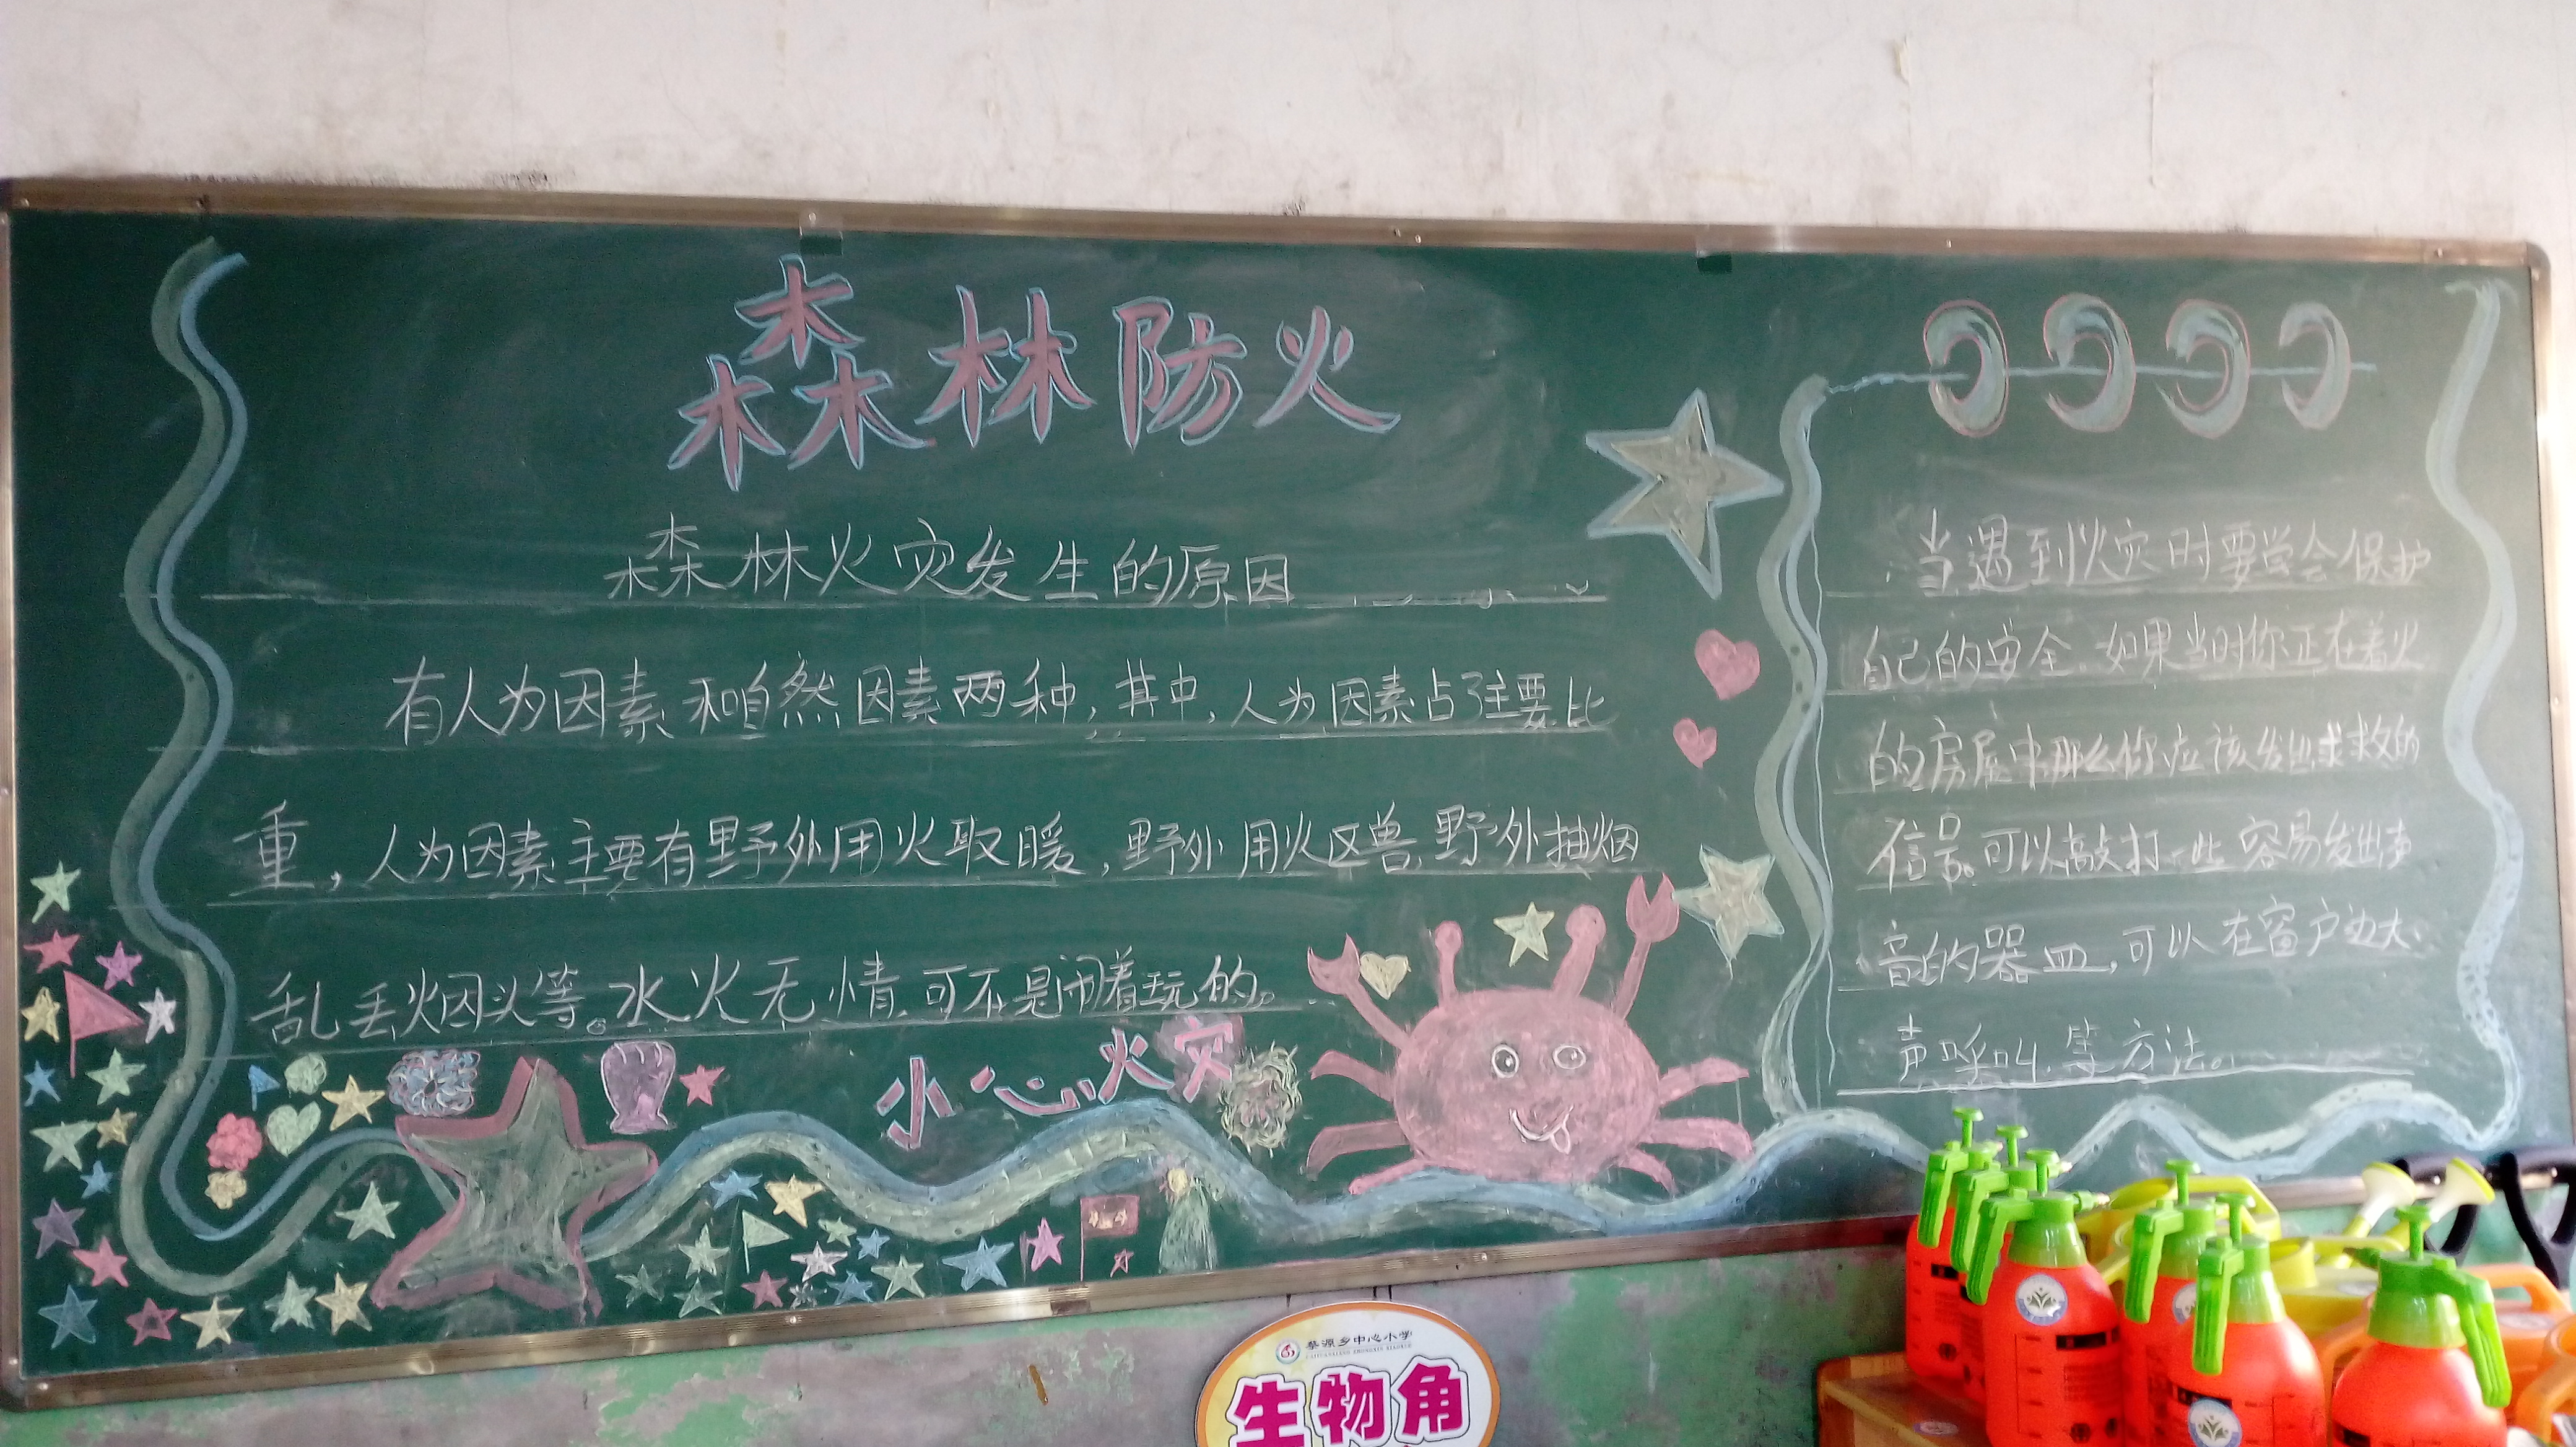 森林防火
森林火灾发生的原因
有人为因素和自然因素两种，其中，人为因素占了主要比
重，人为因素主要有野外用火取暖，野外用火区兽，野外抽烟
乱丢烟头等。水火无情，可不是闹着玩的。
小心火灾
当遇到火灾时要学会保护
自己的安全。如果当时你正在着火
的房屋中那么你应该发出求救的
信号。可以敲打一些容易发出声
音的器皿，可以在窗户边大
声呼叫，等方法。
婺源乡中心小学
生物角